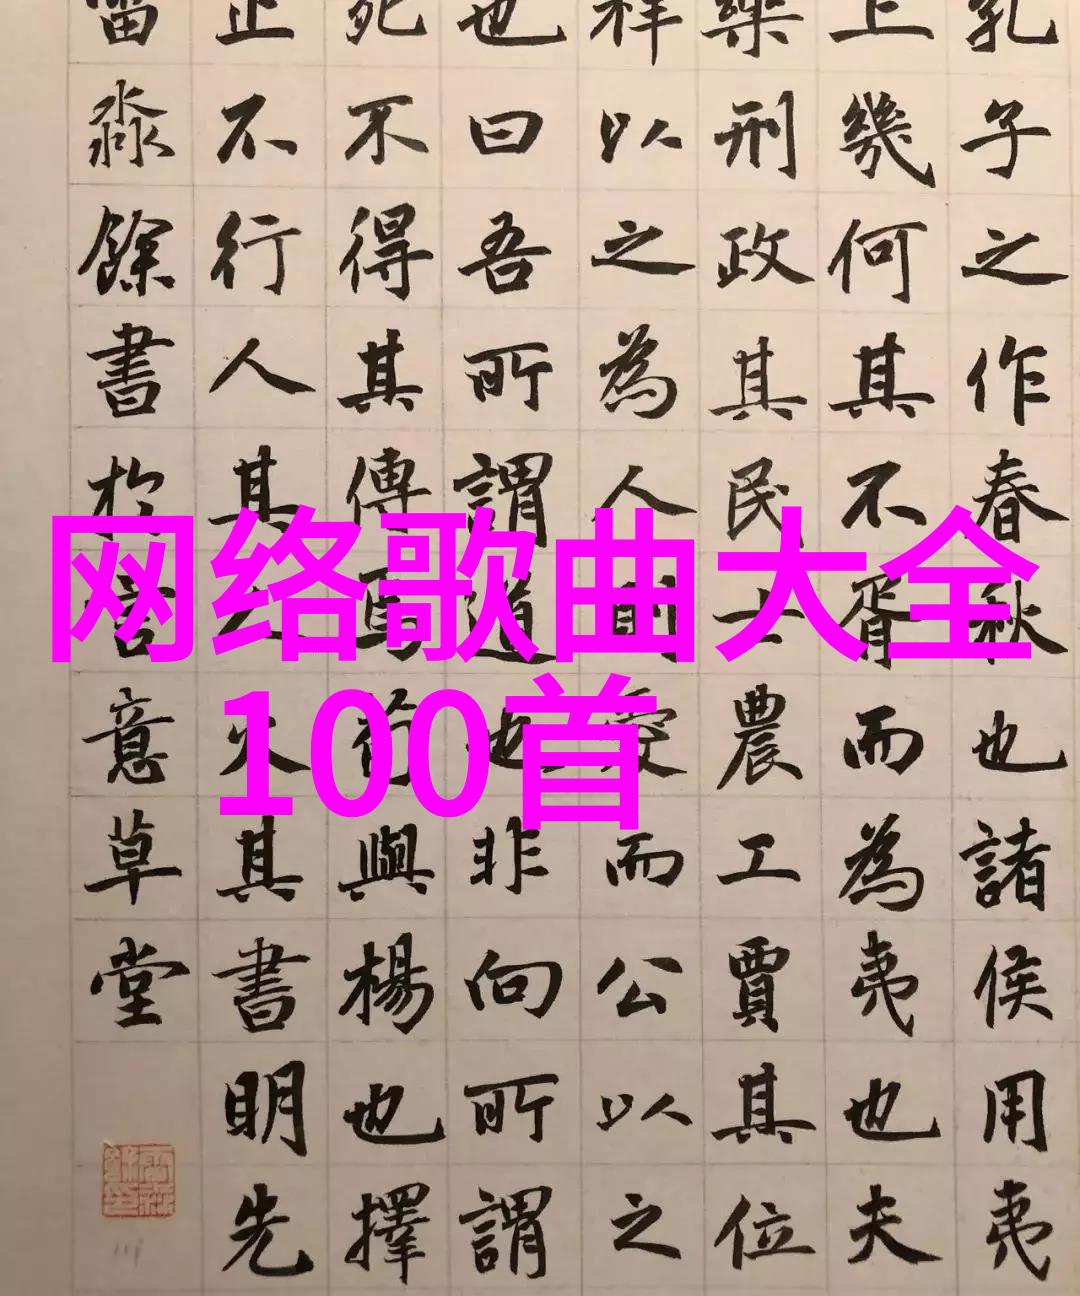 孔子之作春秋也諸侯用夷
上幾何其不胥而為夷也夫
樂刑政其民士農工賈其位
祥以之為人則愛而公以之
也曰吾所謂道也非向所謂
死不得其傳焉荀與楊也擇
止不行人其人火其書明先
淼餘書於意草堂
网络歌曲大全
100首